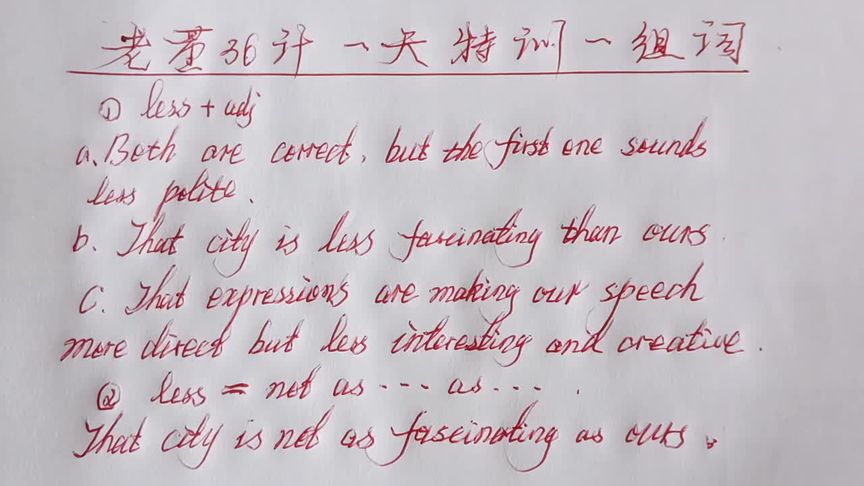 老董36计一天特训一组词
① less + adj
a. Both are correct, but the first one sounds
less polite.
b. That city is less fascinating than ours.
C. That expressions are making our speech
more direct but less interesting and creative.
② less = not as --- as --- .
That city is not as fascinating as ours.